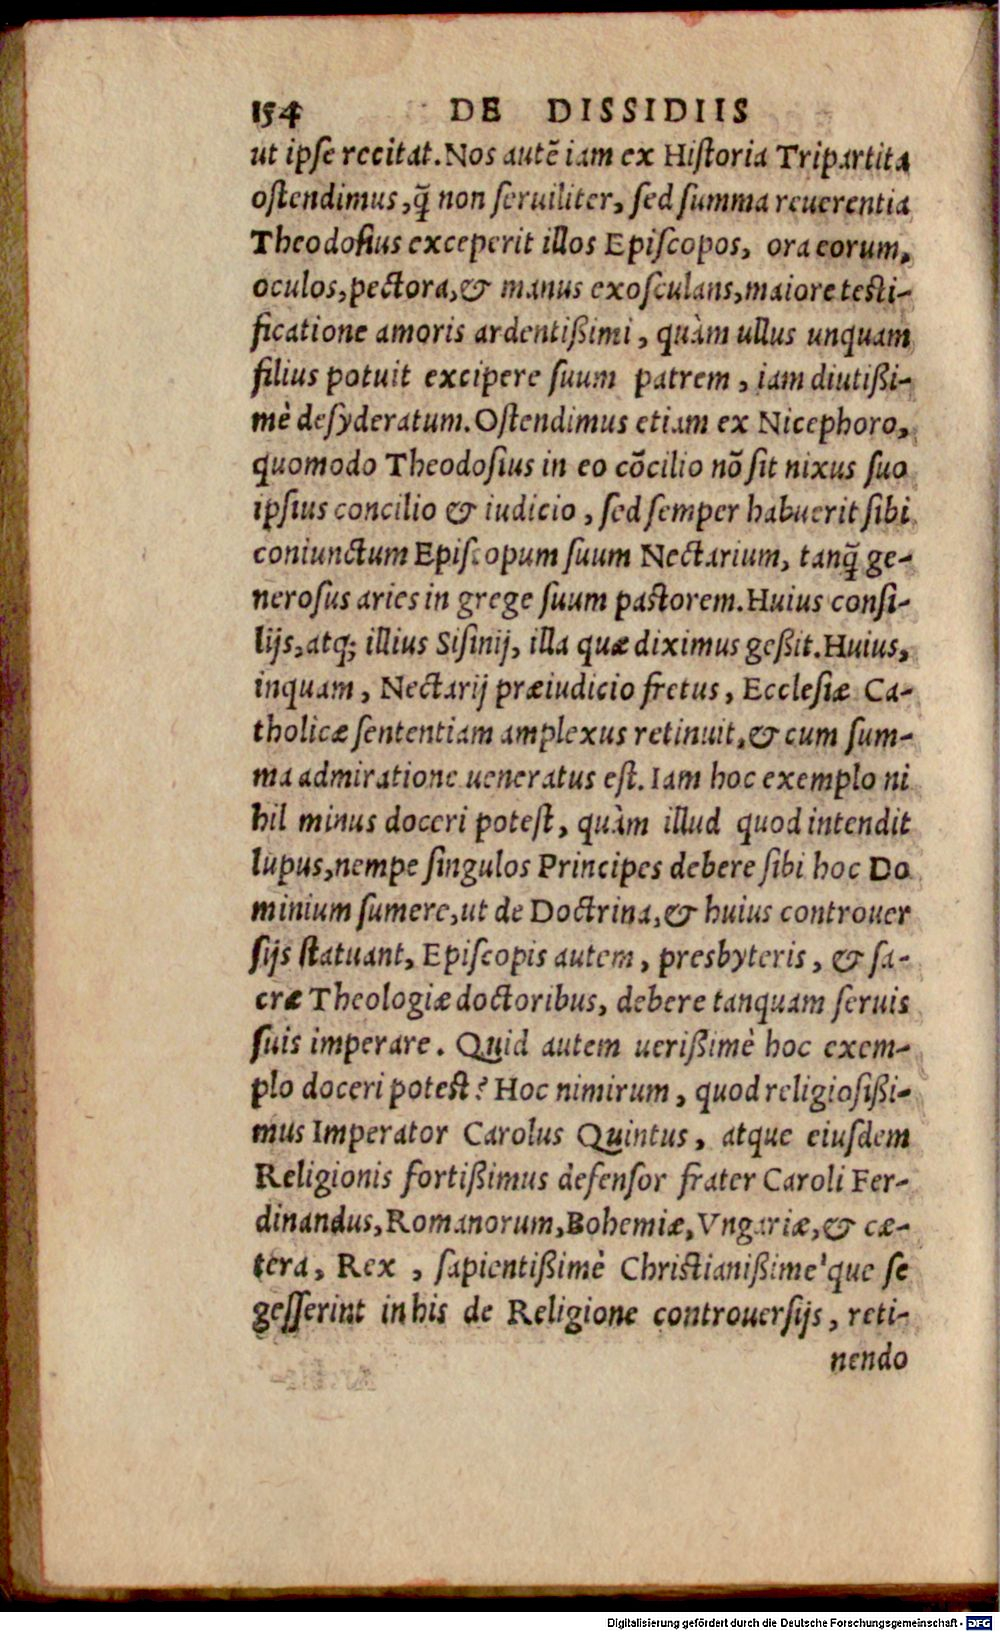 154 DE DISSIDIIS
ut ipſe recitat. Nos autē iam ex Hiſtoria Tripartita
oſtendimus, q̃ non ſeruiliter, ſed ſumma reuerentia
Theodoſius exceperit illos Epiſcopos, ora eorum,
oculos, pectora, & manus exoſculans, maiore teſti-
ficatione amoris ardentißimi, quàm ullus unquam
filius potuit excipere ſuum patrem, iam diutißi-
mè deſyderatum. Oſtendimus etiam ex Nicephoro,
quomodo Theodoſius in eo cōcilio nō ſit nixus ſuo
ipſius concilio & iudicio, ſed ſemper habuerit ſibi
coniunctum Epiſcopum ſuum Nectarium, tanq̃ ge-
neroſus aries in grege ſuum paſtorem. Huius conſi-
lijs, atq; illius Siſinij, illa quæ diximus geßit. Huius,
inquam, Nectarij præiudicio fretus, Eccleſiæ Ca-
tholicæ ſententiam amplexus retinuit, & cum ſum-
ma admiratione ueneratus eſt. Iam hoc exemplo ni
hil minus doceri poteſt, quàm illud quod intendit
lupus, nempe ſingulos Principes debere ſibi hoc Do
minium ſumere, ut de Doctrina, & huius controuer
ſijs ſtatuant, Epiſcopis autem, presbyteris, & ſa-
cræ Theologiæ doctoribus, debere tanquam ſeruis
ſuis imperare. Quid autem uerißimè hoc exem-
plo doceri poteſt? Hoc nimirum, quod religioſißi-
mus Imperator Carolus Quintus, atque eiuſdem
Religionis fortißimus defenſor frater Caroli Fer-
dinandus, Romanorum, Bohemiæ, Vngariæ, & cæ-
tera, Rex, ſapientißimè Chriſtianißime'que ſe
geſſerint in his de Religione controuerſijs, reti-
nendo
Digitalisierung gefördert durch die Deutsche Forschungsgemeinschaft - DFG